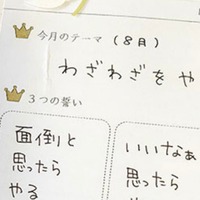 今月のテーマ (8月)
わざわざをや
3つの誓い
面倒と
思ったら
やる
いいなぁ
思ったら